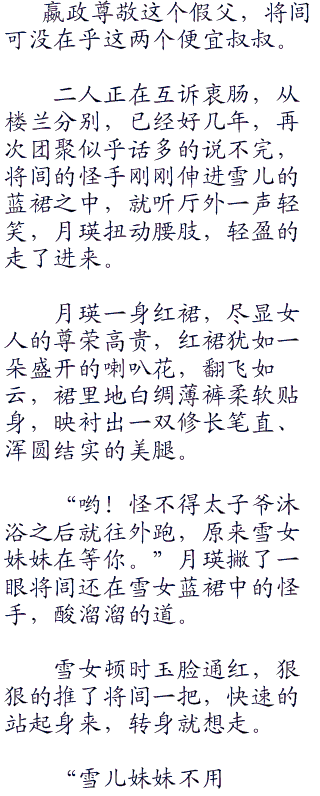 嬴政尊敬这个假父，将闾
可没在乎这两个便宜叔叔。
二人正在互诉衷肠，从
楼兰分别，已经好几年，再
次团聚似乎话多的说不完，
将闾的怪手刚刚伸进雪儿的
蓝裙之中，就听厅外一声轻
笑，月瑛扭动腰肢，轻盈的
走了进来。
月瑛一身红裙，尽显女
人的尊荣高贵，红裙犹如一
朵盛开的喇叭花，翻飞如
云，裙里地白绸薄裤柔软贴
身，映衬出一双修长笔直、
浑圆结实的美腿。
“哟！怪不得太子爷沐
浴之后就往外跑，原来雪女
妹妹在等你。”月瑛撇了一
眼将闾还在雪女蓝裙中的怪
手，酸溜溜的道。
雪女顿时玉脸通红，狠
狠的推了将闾一把，快速的
站起身来，转身就想走。
“雪儿妹妹不用